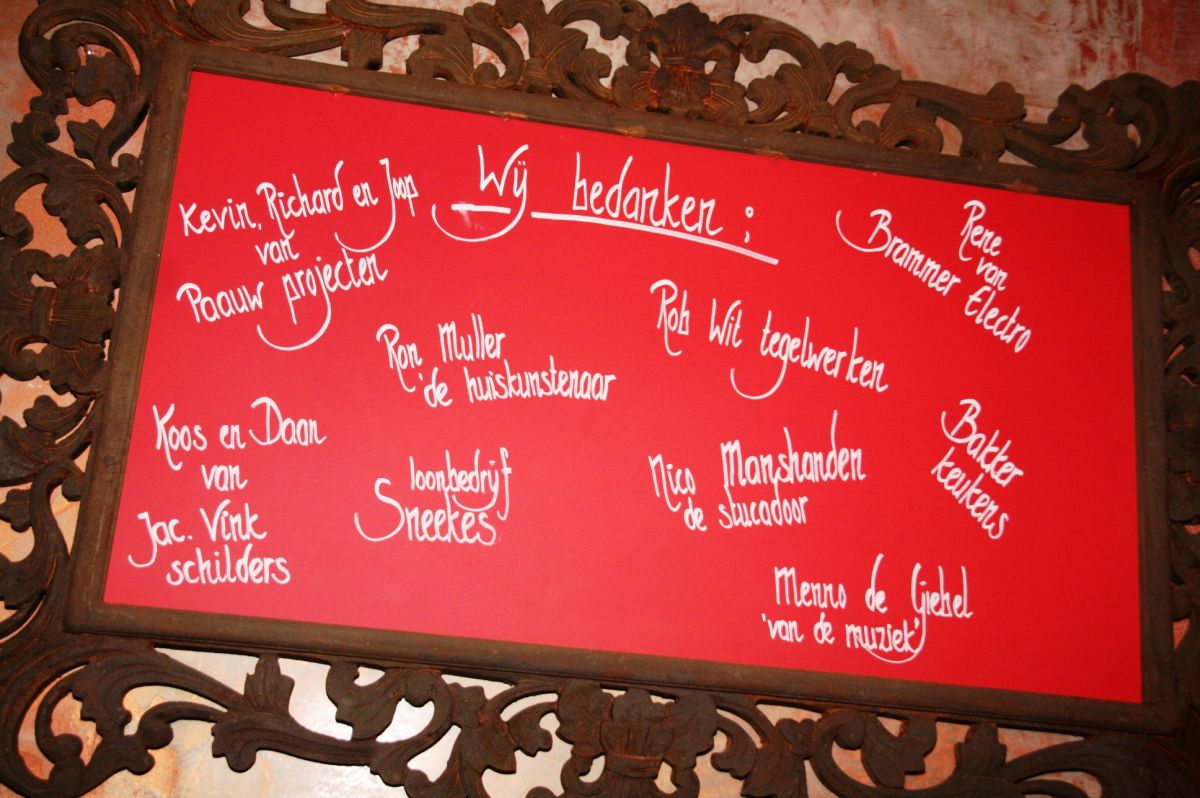 Wij bedanken ;
Kevin, Richard en Joop
van
Paauw projecten
Rene
van
Brammer Electro
Ron Muller
'de huiskunstenaar
Rob Wit tegelwerken
Koos en Daan
van
Jac. Vink
schilders
loonbedrijf
Sneekes
Nico Manshanden
de stucadoor
Bakker
keukens
Menno de Giebel
'van de muziek'